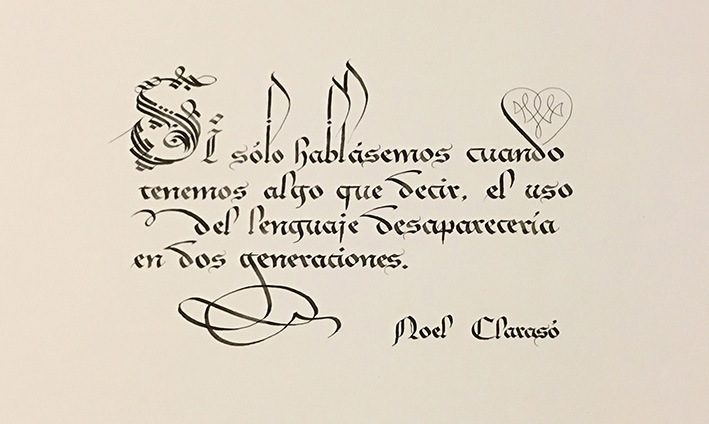 Si sólo hablásemos cuando
tenemos algo que decir, el uso
del lenguaje desaparecería
en dos generaciones.
Noel Clarasó